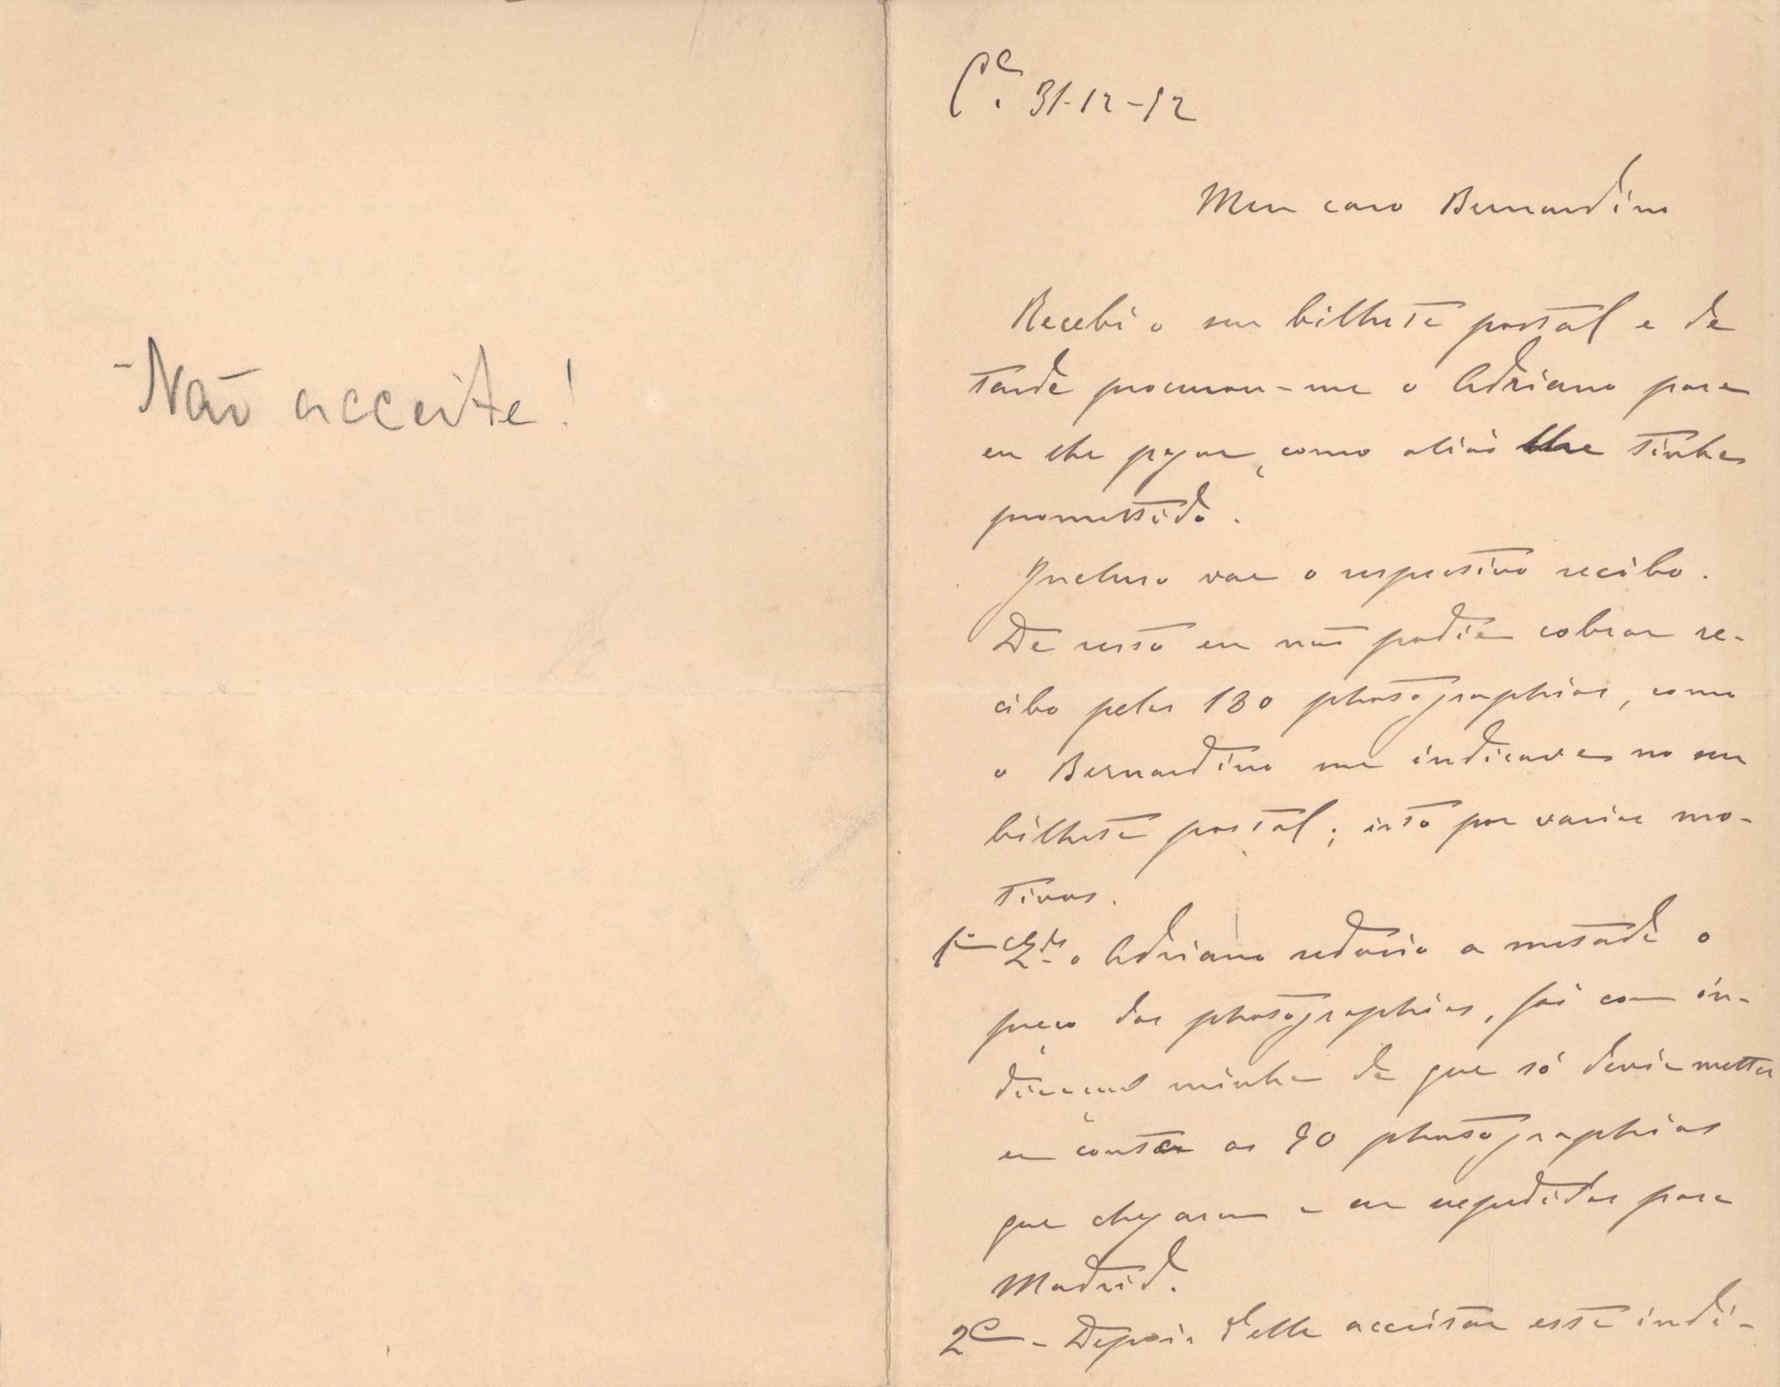 - Não acceite!
C.e 31-12-92
Meu caro Bernardino
Recebi o seu bilhete postal e de
tarde procurou-me o Adriano para
eu lhe pagar, como aliás lhe tinha
promettido.
Incluso vae o respectivo recibo.
De resto eu não podia cobrar re-
cibo pelas 180 photographias, como
o Bernardino me indicava no seu
bilhete postal; isto por varios mo-
tivos.
1º o Adriano reduzio a metade o
preço das photographias, foi com in-
dicação minha de que só devia metter
em conta as 90 photographias
que chegaram a ser expedidas para
Madrid.
2º - Depois d'elle acceitar esta indi-